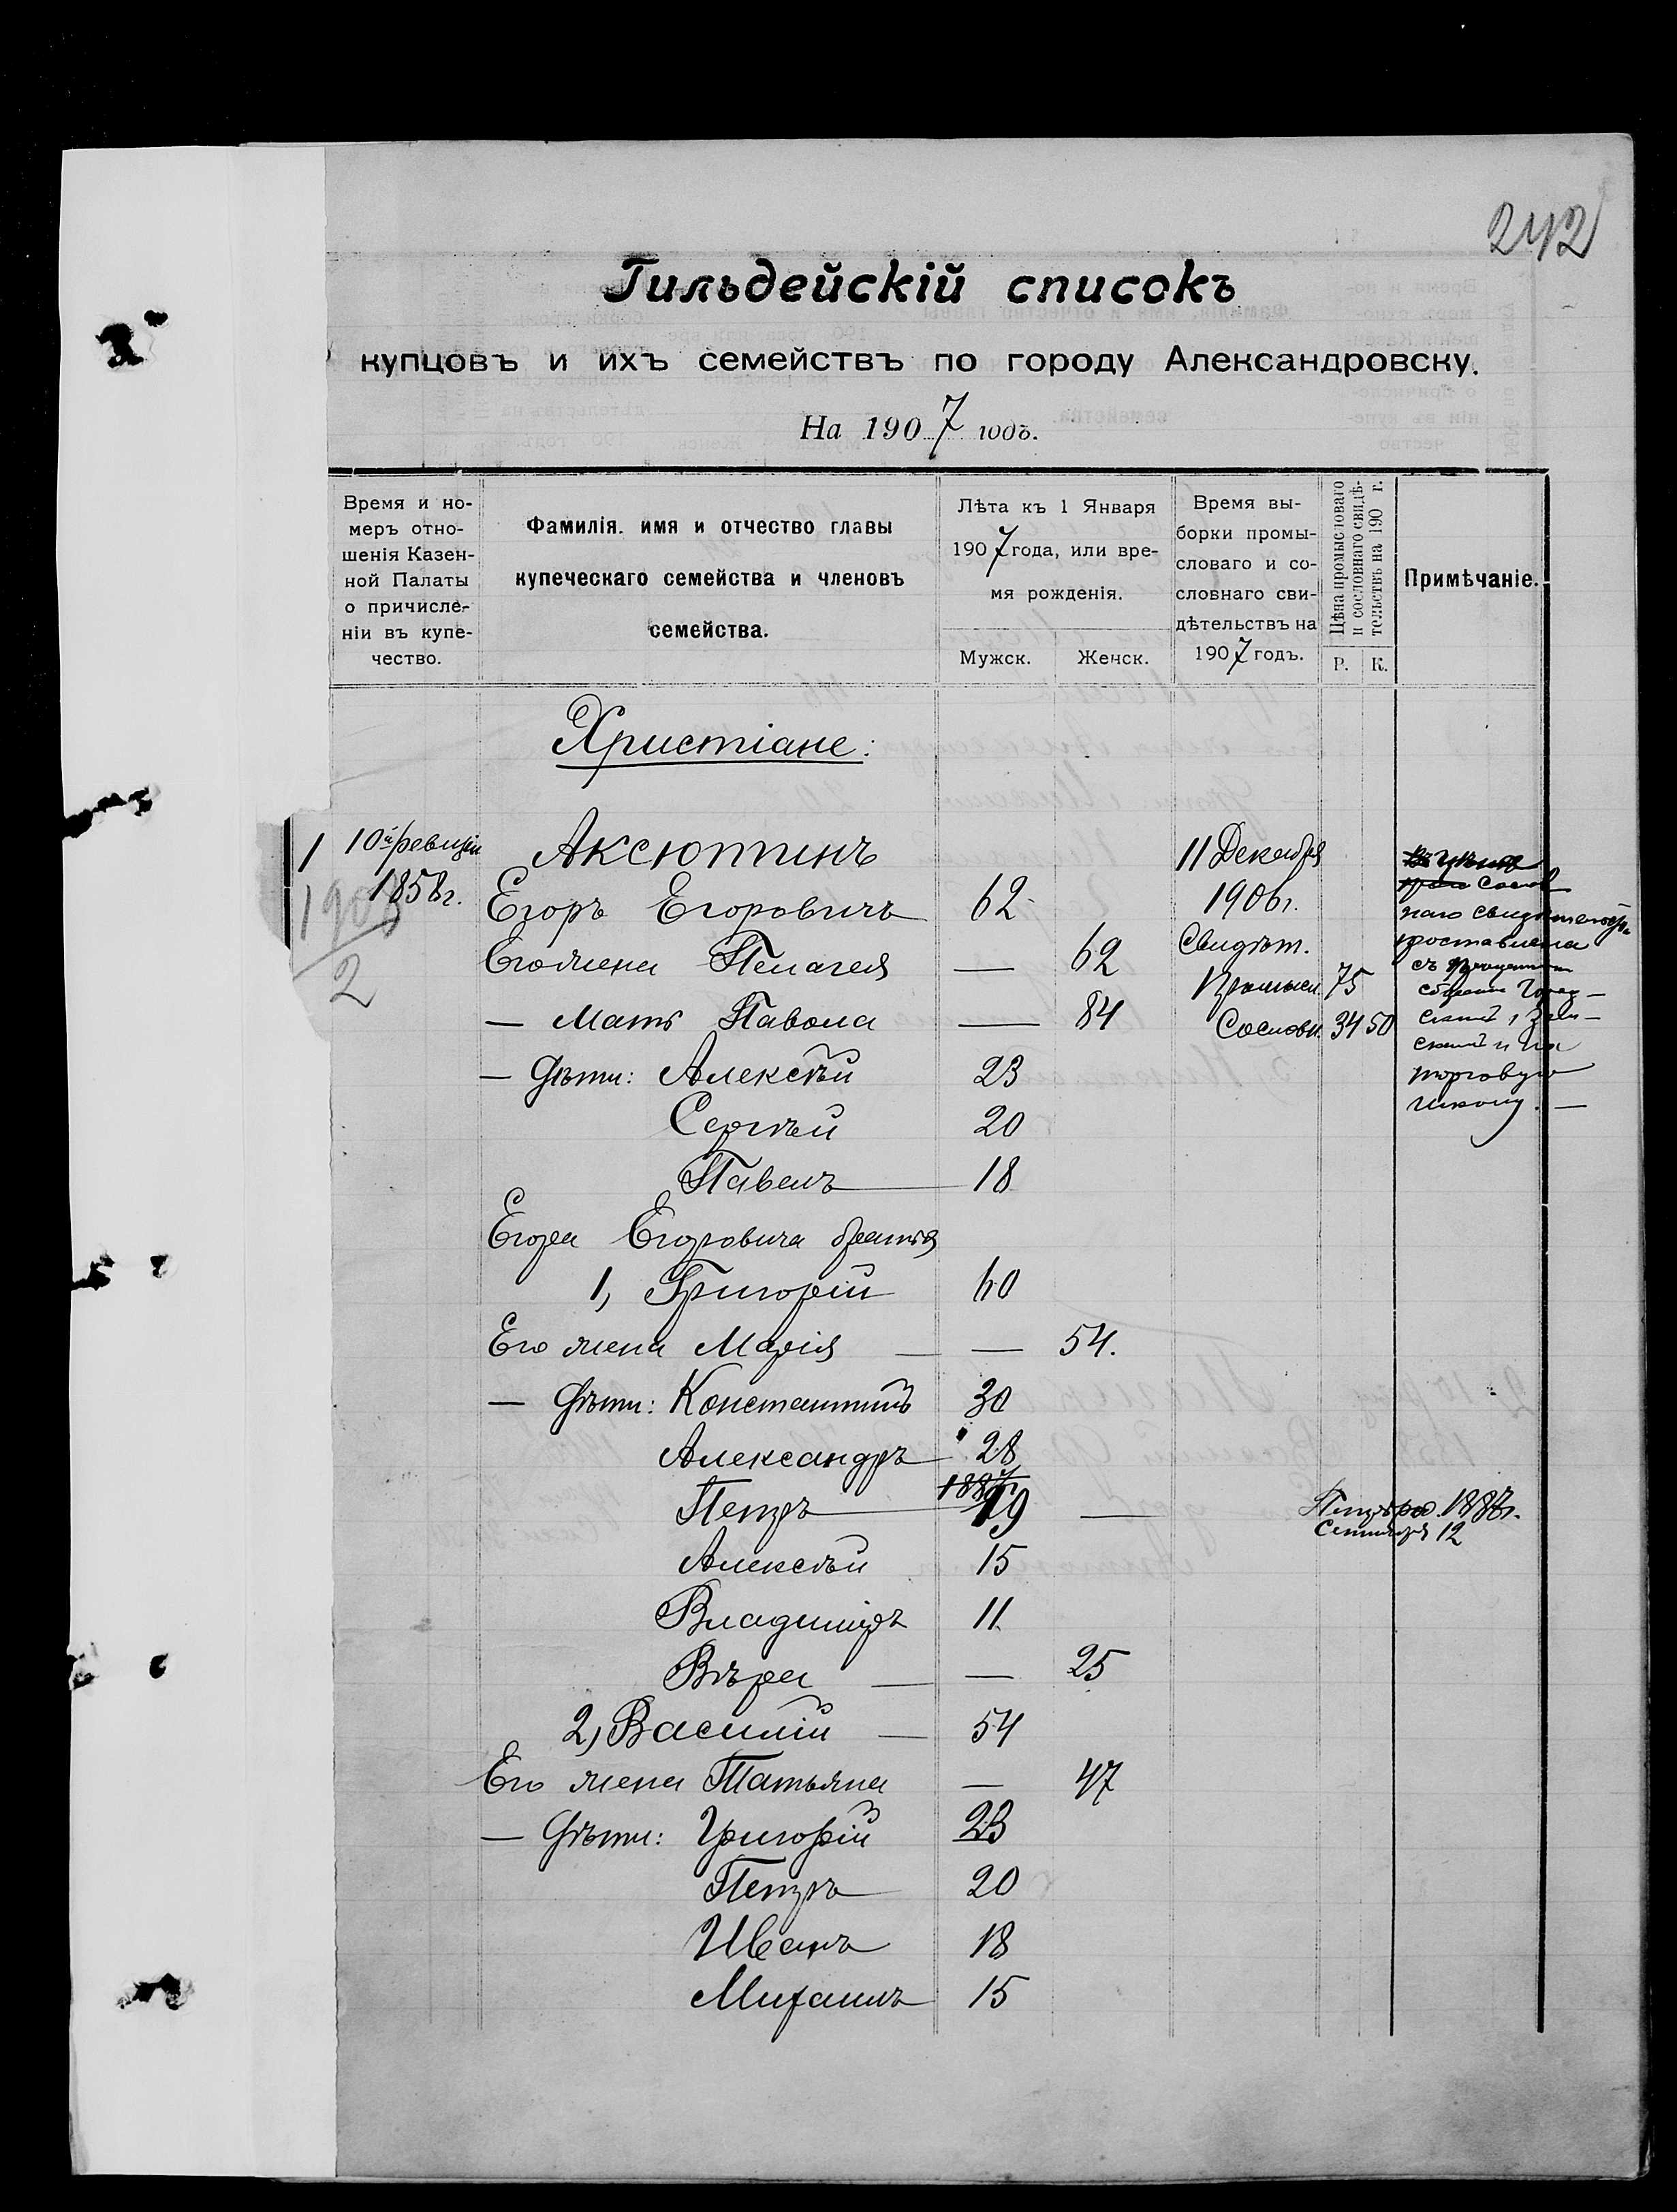 242
Гильдейскій списокъ
купцовъ и ихъ семействъ по городу Александровску.
На 1907 годъ.
Время и но-
меръ отно-
шенія Казен-
ной Палаты
о причисле-
ніи въ купе-
чество.
Фамилія. имя и отчество главы
купеческаго семейства и членовъ
семейства.
Лѣта къ 1 Января
1907 года, или вре-
мя рожденія.
Мужск. Женск.
Время вы-
борки промы-
словаго и со-
словнаго сви-
дѣтельствъ на
1907 годъ.
Цѣна промысловаго
и сословнаго свидѣ-
тельствъ на 190 г.
Р. К.
Примѣчаніе.
Христіане:
1 10й ревизіи Аксютинъ 11 Декабря
1858 г. Егоръ Егоровичъ 62 1906 г.
2
Его жена Пелагея — 62 Свидѣт.
Промысл. 75
— Мать Павола — 84 Сословн. 34 50
сослов
наго свидѣтельства
проставлена
съ
сборами Город—
ской, Зем—
ской и на
торговую
школу. —
— Дѣти: Алексѣй 23
Сергѣй 20
Павелъ 18
Егора Егоровича братья
1, Григорій 60
Его жена Марія — 54.
— Дѣти: Константинъ 30
Александръ 28
1887
Петръ 19 — Петръ ро. 1887г.
Сентября 12
Алексѣй 15
Владиміръ 11
Вѣра — 25
2) Василій — 54
Его жена Татьяна — 47
— Дѣти: Григорій 23
Петръ 20
Иванъ 18
Михаилъ 15